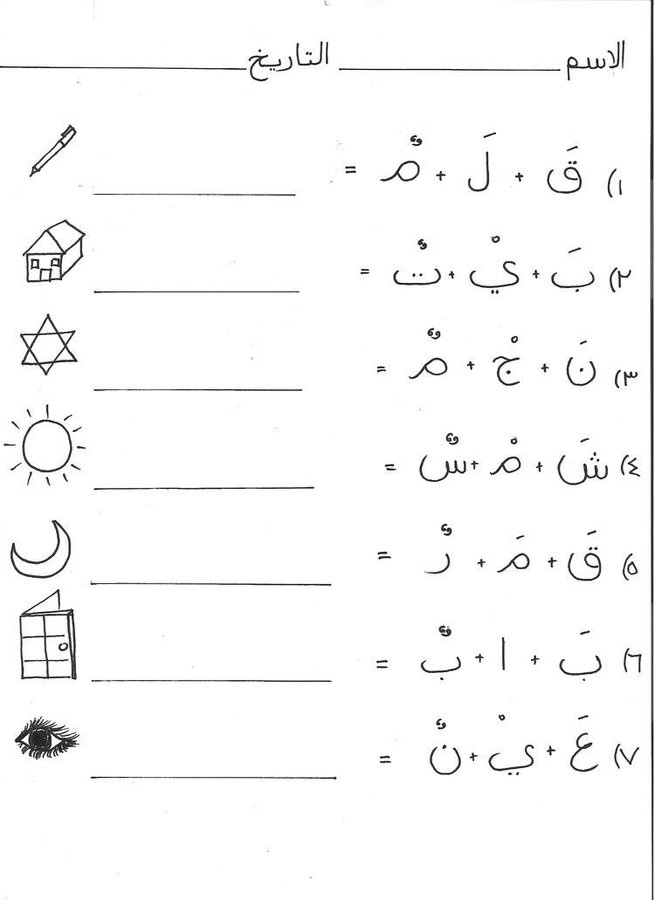 الاسم ____________ التاريخ ____________
١) قَ + لَ + مٌ =
٢) بَ + يْ + تٌ =
٣) نَ + جْ + مٌ =
٤) شَ + مْ + سٌ =
٥) قَ + مَ + رٌ =
٦) بَ + ا + بٌ =
٧) عَ + يْ + نٌ =